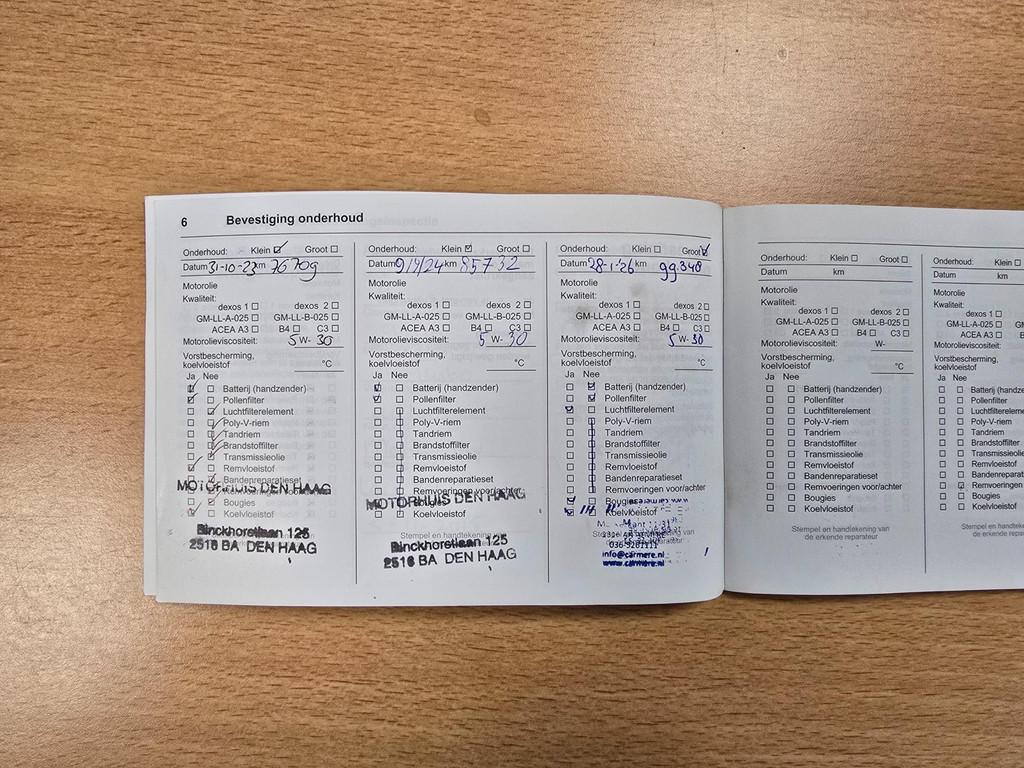 6 Bevestiging onderhoud
Onderhoud: Klein Groot
Datum 31-10-23 km 76709
Motorolie
Kwaliteit:
dexos 1 dexos 2
GM-LL-A-025 GM-LL-B-025
ACEA A3 B4 C3
Motorolieviscositeit: 5 W- 30
Vorstbescherming,
koelvloeistof °C
Ja Nee
Batterij (handzender)
Pollenfilter
Luchtfilterelement
Poly-V-riem
Tandriem
Brandstoffilter
Transmissieolie
Remvloeistof
Bandenreparatieset
MOTORHUIS DEN HAAG
Bougies
Koelvloeistof
Binckhorstlaan 125
2516 BA DEN HAAG
Onderhoud: Klein Groot
Datum 9/9/24 km 85732
Motorolie
Kwaliteit:
dexos 1 dexos 2
GM-LL-A-025 GM-LL-B-025
ACEA A3 B4 C3
Motorolieviscositeit: 5 W- 30
Vorstbescherming,
koelvloeistof °C
Ja Nee
Batterij (handzender)
Pollenfilter
Luchtfilterelement
Poly-V-riem
Tandriem
Brandstoffilter
Transmissieolie
Remvloeistof
Bandenreparatieset
Remvoeringen voor/achter
MOTORHUIS DEN HAAG
Koelvloeistof
Binckhorstlaan 125
2516 BA DEN HAAG
Onderhoud: Klein Groot
Datum 28-1-'26 km 99.340
Motorolie
Kwaliteit:
dexos 1 dexos 2
GM-LL-A-025 GM-LL-B-025
ACEA A3 B4 C3
Motorolieviscositeit: 5 W- 30
Vorstbescherming,
koelvloeistof °C
Ja Nee
Batterij (handzender)
Pollenfilter
Luchtfilterelement
Poly-V-riem
Tandriem
Brandstoffilter
Transmissieolie
Remvloeistof
Bandenreparatieset
Remvoeringen voor/achter
Bougies
Koelvloeistof
info@carmere.nl
www.carmere.nl
Onderhoud: Klein Groot
Datum km
Motorolie
Kwaliteit:
dexos 1 dexos 2
GM-LL-A-025 GM-LL-B-025
ACEA A3 B4 C3
Motorolieviscositeit: W-
Vorstbescherming,
koelvloeistof °C
Ja Nee
Batterij (handzender)
Pollenfilter
Luchtfilterelement
Poly-V-riem
Tandriem
Brandstoffilter
Transmissieolie
Remvloeistof
Bandenreparatieset
Remvoeringen voor/achter
Bougies
Koelvloeistof
Stempel en handtekening van
de erkende reparateur
Onderhoud: Klein
Datum km
Motorolie
Kwaliteit:
dexos 1
GM-LL-A-025
ACEA A3
Motorolieviscositeit:
Vorstbescherming,
koelvloeistof
Ja Nee
Batterij (handze
Pollenfilter
Luchtfilterelem
Poly-V-riem
Tandriem
Brandstoffilter
Transmissieolie
Remvloeistof
Bandenreparati
Remvoeringen
Bougies
Koelvloeistof
Stempel en handteken
de erkende repara